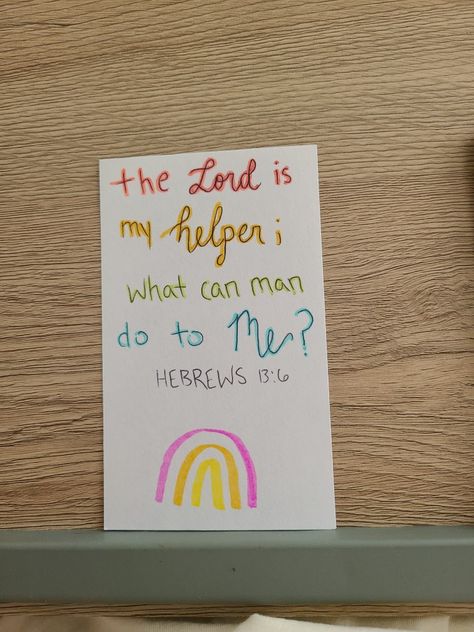 the Lord is
my helper;
what can man
do to Me?
HEBREWS 13:6